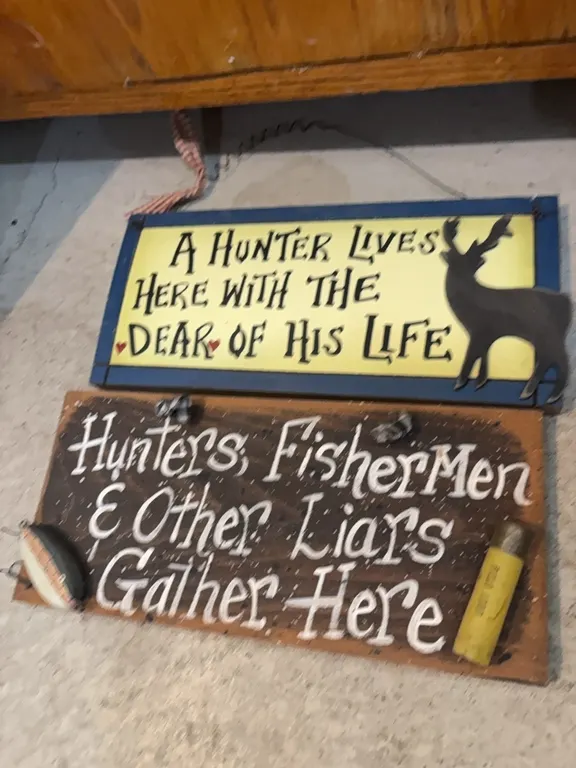 A HUNTER LIVES
HERE WITH THE
DEAR OF HIS LIFE
Hunters, FisherMen
& Other Liars
Gather Here